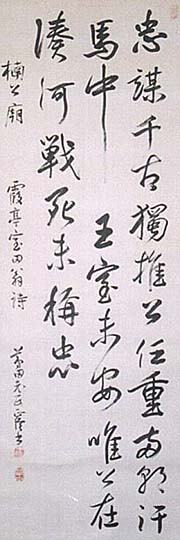 忠謀千古獨推公任重両朝汗
馬中　王室未安唯公在
湊河戦死未稱忠
楠公廟　霞亭室田翁詩